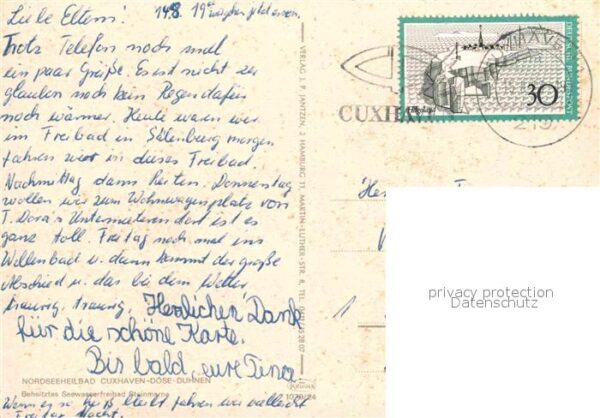 Liebe Eltern! 14.8. 19
Trotz Telefon noch mal
ein paar Grüße. Es ist nicht zu
glauben noch kein Regen dafür
noch wärmer. Heute waren wir
im Freibad in morgen
fahren wir in dieses Freibad.
Nachmittag dann Donnerstag
wollen wir zum Wohnwagenplatz von
T. Dora's dort ist es
ganz toll. Freitag noch mal ins
Wellenbad u. dann kommt der große
Abschied u. das bei dem Wetter
traurig, traurig. Herzlichen Dank
für die schöne Karte.
Bis bald, eure Tina
NORDSEEHEILBAD CUXHAVEN-DÖSE-DUHNEN
Beheiztes Seewasserfreibad Steinmarne
Wenn es so heiß bleibt fahren wir vielleicht
Freitag Nacht.
VERLAG J. P. JANTZEN, 2 HAMBURG 33, MARTIN-LUTHER-STR. 8, TEL.
DEUTSCHE BUNDESPOST
30
CUXHAVEN
CUXHAV
219
privacy protection
Datenschutz